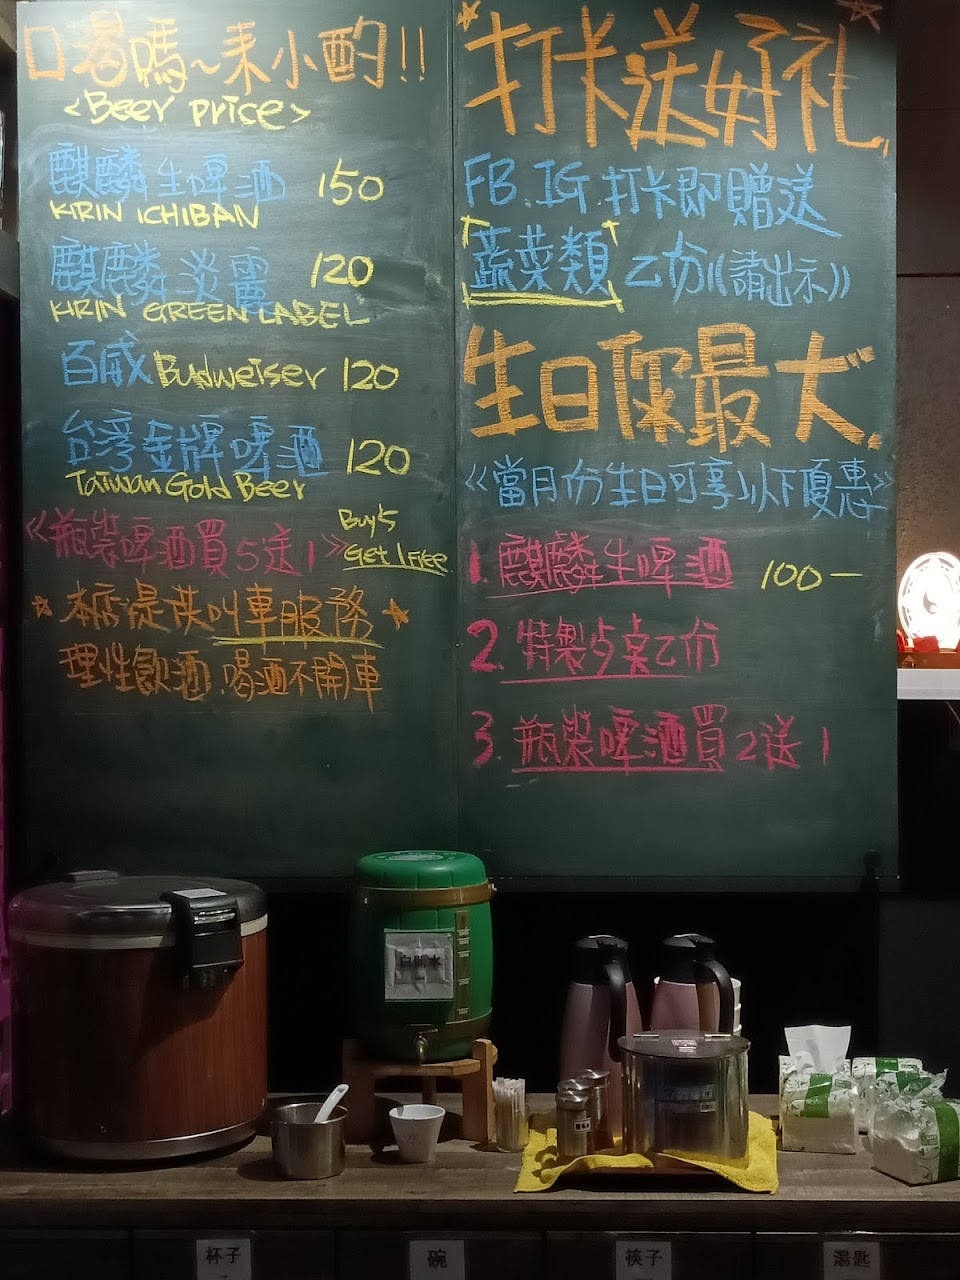 口渴嗎~来小酌!!
<Beer price>
麒麟生啤酒 150
KIRIN ICHIBAN
麒麟淡麗 120
KIRIN GREEN LABEL
百威 Budweiser 120
台湾金牌啤酒 120
Taiwan Gold Beer
《瓶裝啤酒買5送1》 Buy 5 Get 1 Free
本店提供叫車服務
理性飲酒.喝酒不開車
打卡送好礼
FB.IG.打卡即贈送
蔬菜類 乙份((請出示))
生日你最大
《當月份生日可享以下優惠》
1.麒麟生啤酒 100—
2.特製 乙份
3.瓶裝啤酒買2送1
白開水
杯子
碗
筷子
湯匙